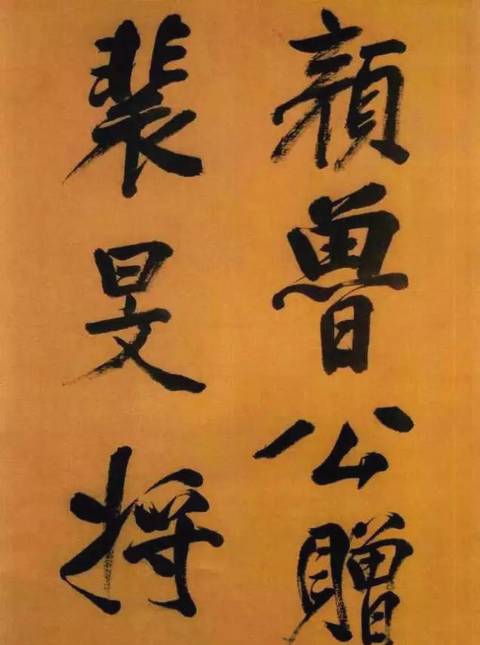 顏魯公贈
裴旻將